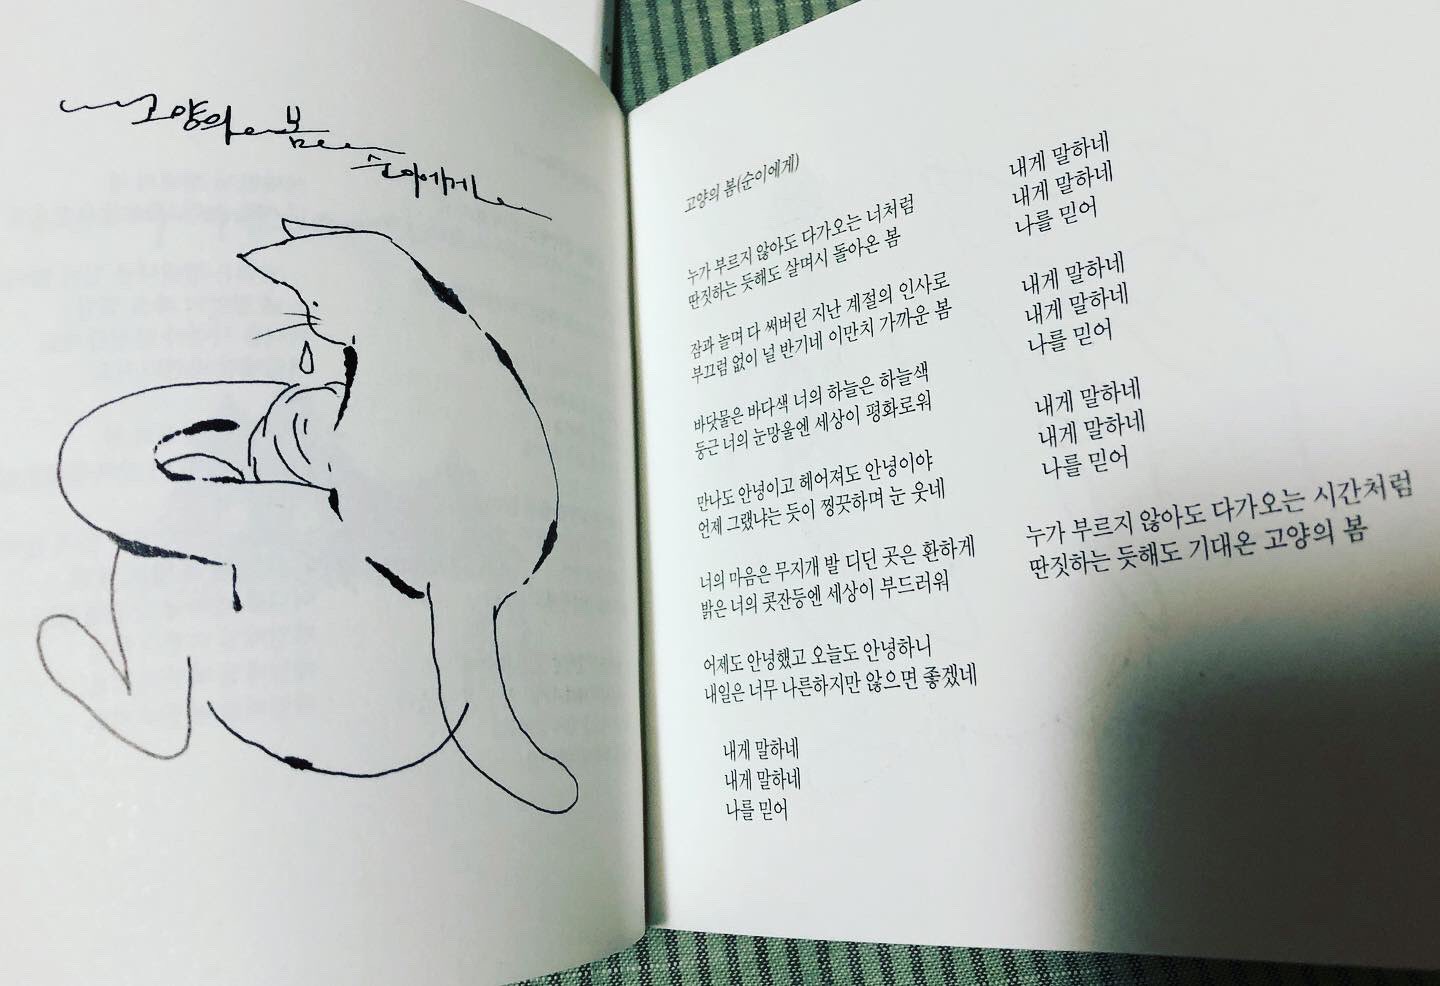 고양의 봄
순이에게
고양의 봄(순이에게)
누가 부르지 않아도 다가오는 너처럼
딴짓하는 듯해도 살며시 돌아온 봄
잠과 놀며 다 써버린 지난 계절의 인사로
부끄럼 없이 널 반기네 이만치 가까운 봄
바닷물은 바다색 너의 하늘은 하늘색
둥근 너의 눈망울엔 세상이 평화로워
만나도 안녕이고 헤어져도 안녕이야
언제 그랬냐는 듯이 찡끗하며 눈 웃네
너의 마음은 무지개 발 디딘 곳은 환하게
밝은 너의 콧잔등엔 세상이 부드러워
어제도 안녕했고 오늘도 안녕하니
내일은 너무 나른하지만 않으면 좋겠네
내게 말하네
내게 말하네
나를 믿어
내게 말하네
내게 말하네
나를 믿어
내게 말하네
내게 말하네
나를 믿어
내게 말하네
내게 말하네
나를 믿어
누가 부르지 않아도 다가오는 시간처럼
딴짓하는 듯해도 기대온 고양의 봄